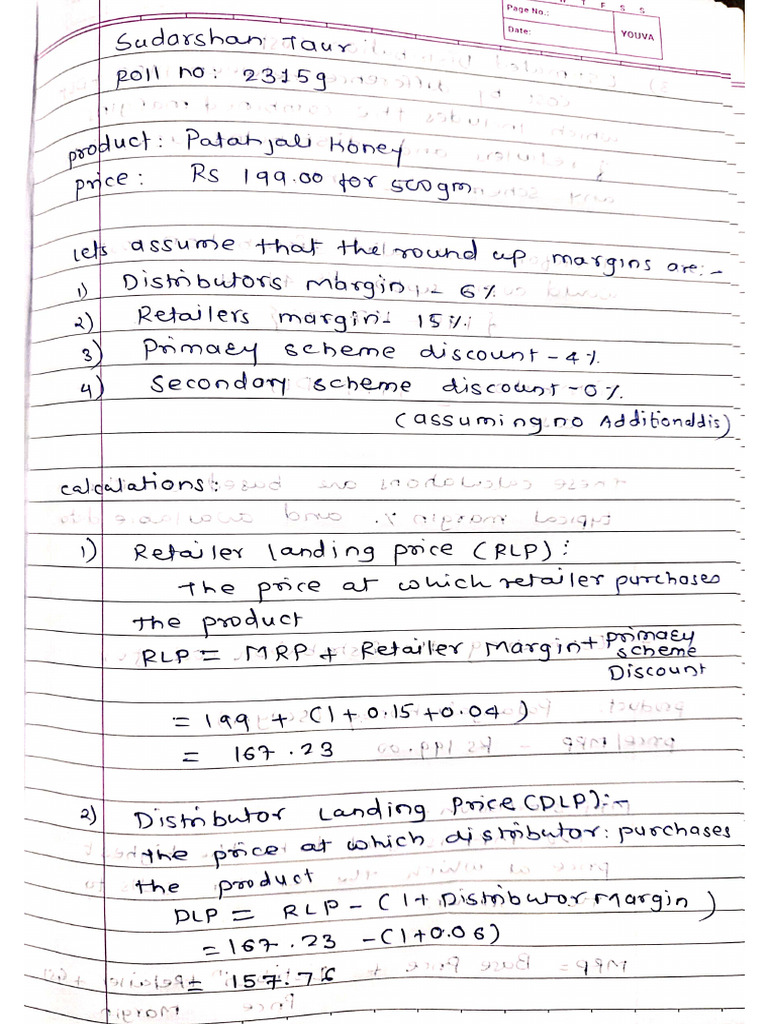 Page No.:
Date:
YOUVA
Sudarshan Taur
Roll no: 23159
product: Patanjali Honey
price: Rs 199.00 for 500gm
lets assume that the round up margins are:-
1) Distributors margin - 6%
2) Retailers margin - 15%
3) Primary scheme discount - 4%
4) Secondary scheme discount - 0%
(assuming no Additional dis)
calculations:
1) Retailer landing price (RLP):
The price at which retailer purchases
the product
RLP = MRP + Retailer Margin + primary scheme Discount
= 199 + (1+0.15+0.04)
= 167.23
2) Distributor Landing Price (DLP):-
the price at which distributor: purchases
the product
DLP = RLP - (1+Distributor Margin)
= 167.23 - (1+0.06)
= 157.76